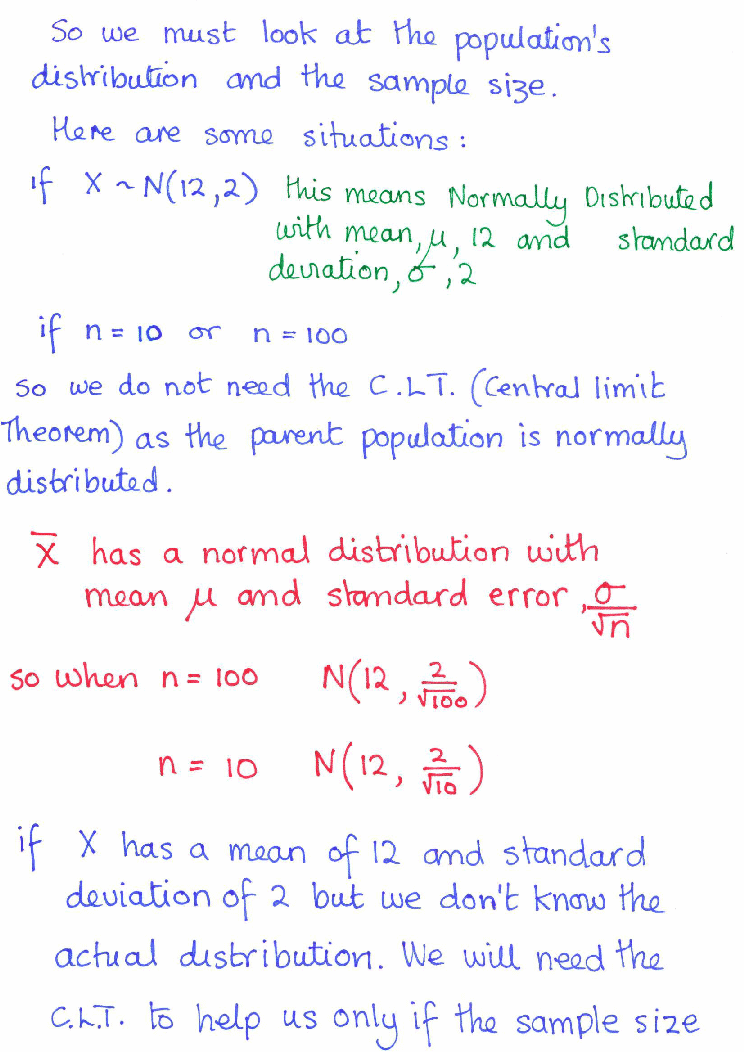 So we must look at the population's
distribution and the sample size.
Here are some situations:
if X ~ N(12,2) this means Normally Distributed
with mean, μ, 12 and standard
deviation, σ, 2
if n = 10 or n = 100
So we do not need the C.L.T. (Central limit
Theorem) as the parent population is normally
distributed.
X̅ has a normal distribution with
mean μ and standard error, σ/√n
so when n = 100 N(12, 2/√100)
n = 10 N(12, 2/√10)
if X has a mean of 12 and standard
deviation of 2 but we don't know the
actual distribution. We will need the
C.L.T. to help us only if the sample size